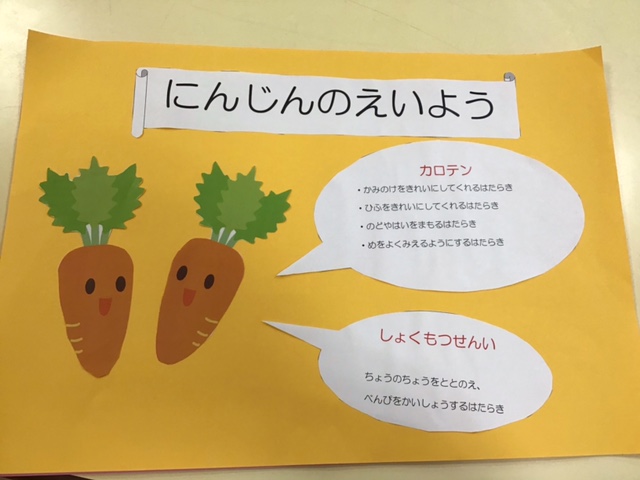 にんじんのえいよう
カロテン
・かみのけをきれいにしてくれるはたらき
・ひふをきれいにしてくれるはたらき
・のどやはいをまもるはたらき
・めをよくみえるようにするはたらき
しょくもつせんい
ちょうのちょうをととのえ、
べんぴをかいしょうするはたらき